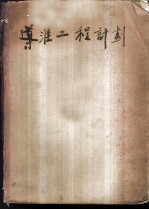 導淮工程計劃